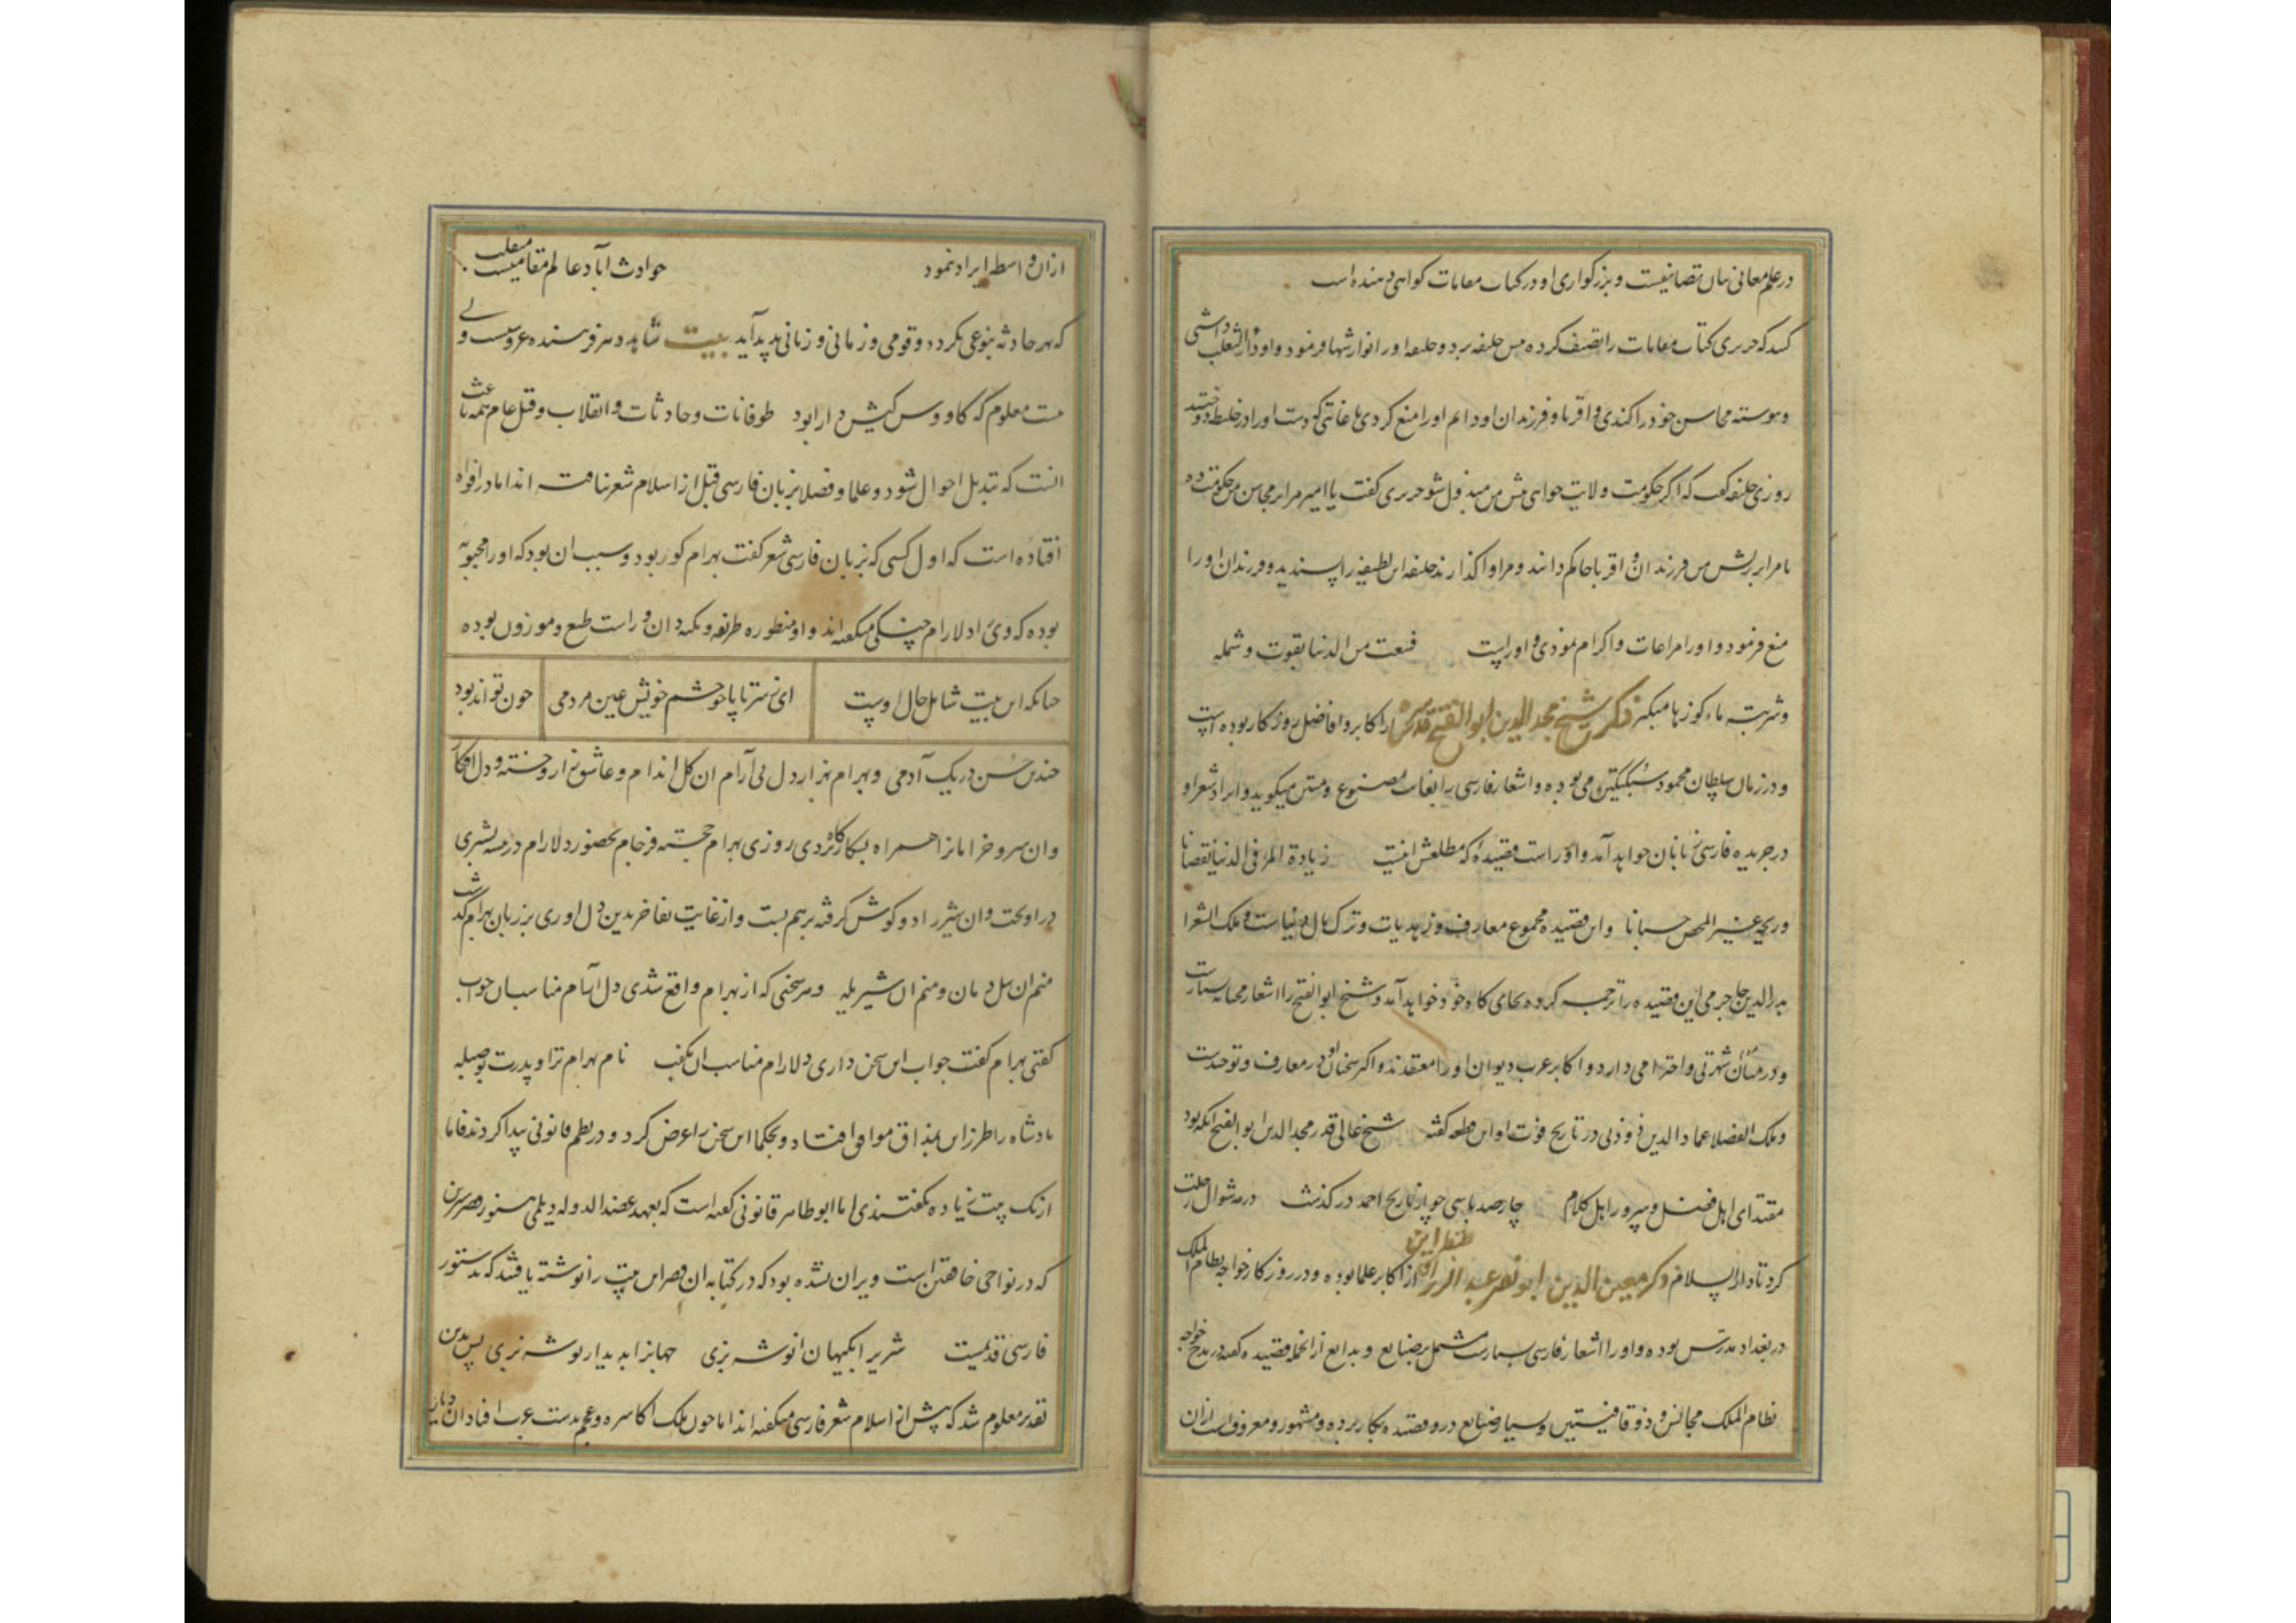 در علم معانی بیان تصانیفست و بزرگواری او در کتاب مقامات گواهی دهنده است
که حریری کتاب مقامات را تصنیف کرده پیش خلیفه برد و خلیفه او را نوازشها فرمود و او داء الثعلب داشتی
و پیوسته محاسن خود را کندی و اقربا و فرزندان او دایم او را منع کردی تا غایتی که دست او را در خلیطه دوختند
روزی خلیفه گفت که اگر حکومت ولایت خواهی پیش من مبذول شود حریری گفت یا امیر مرا بر محاسن من حکومت ده
تا مرا بر ریش من فرزندان و اقربا حاکم دانند و مرا واگذارند خلیفه این لطیفه را پسندیده و فرزندان او را
منع فرمود و او را مراعات و اکرام نمودی و او راست قنعت من الدنیا بقوت و شمله
و شربت ماء کوزها متکسر ذکر شیخ مجد الدین ابو الفتح قدس سره از اکابر و افاضل روزگار بوده است
و در زمان سلطان محمود سبکتکین می بوده و اشعار فارسی را بغایت مصنوع و متین میگوید و ایراد شعر او
در جریده فارسی زبانان خواهد آمد و او راست قصیده که مطلعش اینست زیادة المرء فی الدنیا نقصانا
و ربحه غیر المحض حسبانا و این قصیده مجموع معارف و زهدیات و ترک مال دنیاست و ملک الشعرا
بدر الدین جاجرمی این قصیده را ترجمه کرده بجای گاه خود خواهد آمد و شیخ ابو الفتح را اشعار بسیارست
و در میان شهرتی و احترامی دارد و اکابر عرب دیوان او را معتقدند و اکثر سخنان او در معارف و توحیدست
و ملک الفضلا عماد الدین زوزنی در تاریخ فوت او این قطعه گفته شیخ عالی قدر مجد الدین ابو الفتح آنکه بود
مقتدای اهل فضل و سرور اهل کلام چارصد با سی چو از تاریخ احمد در گذشت در مه شوال رحلت
کرد تا دار السلام ذکر معین الدین ابو نصر عبد الرزاق طنطراین از اکابر علما بوده و در روزگار خواجه نظام الملک
در بغداد مدرس بوده و او را اشعار فارسی بسیارست مشتمل بر صنایع و بدایع از انجمله قصیده گفته در مدح خواجه
نظام الملک مجانس و ذوقافیتین و بسیار صنایع درو قصیده بکار برده و مشهور و معروف است ازان
ازان واسطه ایراد نمود حوادث آباد عالم مقامیست منقلب
که هر حادثه بنوعی بگردد و قومی و زمانی و زبانی پدید آید بیت شاید و هر فریبنده عروسیست ولی
نیست معلوم که کاووس کیش دارا بود طوفانات و حادثات و انقلاب و قتل عام همه باعث
انست که تبدیل احوال شود و علما و فضلا بزبان فارسی قبل از اسلام شعر نیافته اند اما در افواه
افتاده است که اول کسی که بزبان فارسی شعر گفت بهرام کور بود و سبب ان بود که او را محبوبه
بوده که وی را دلارام چنگی میگفته اند و او منظوره ظریفه و نکته دان و راست طبع و موزون بوده
چنانکه این بیت شامل حال اوست ای ز سر تا پا چو چشم خویش عین مردمی چون تواند بود
چندین حسن در یک آدمی و بهرام بهزار دل بی آرام ان گل اندام و عاشق زار و خسته و دل افکار
و ان سرو خرامان را همراه بشکارگاه بردی روزی بهرام خجسته فرجام بحضور دلارام در بیشه بشیری
در اویخت و ان شیر را دو گوش گرفته بر هم بست و از غایت تفاخر بدین دل اوری بر زبان بهرام گذشت
منم ان پیل دمان و منم ان شیر یله و هر سخنی که از بهرام واقع شدی دل آرام مناسب ان جواب
گفتی بهرام گفت جواب این سخن داری دلارام مناسب ان بگفت نام بهرام ترا و پدرت بوجبله
پادشاه را طرز این بمذاق موافق افتاد و بحکما این سخن را عرض کرد و در نظم قانونی پیدا کردند فاما
از یک بیت زیاده نگفتندی اما ابو طاهر قانونی گفته است که بعهد عضد الدوله دیلمی هنوز قصر شیرین
که در نواحی خانقین است ویران نشده بود که در کتابه ان قصر این بیت را نوشته یافتند که بدستور
فارسی قدیمست هژیرا بگیهان انوشه بزی جهانرا بدیدار توشه بزی پس بدین
تقدیر معلوم شد که پیش از اسلام شعر فارسی میگفته اند اما چون ملک اکاسره و عجم بدست عرب افتاد ان دیار